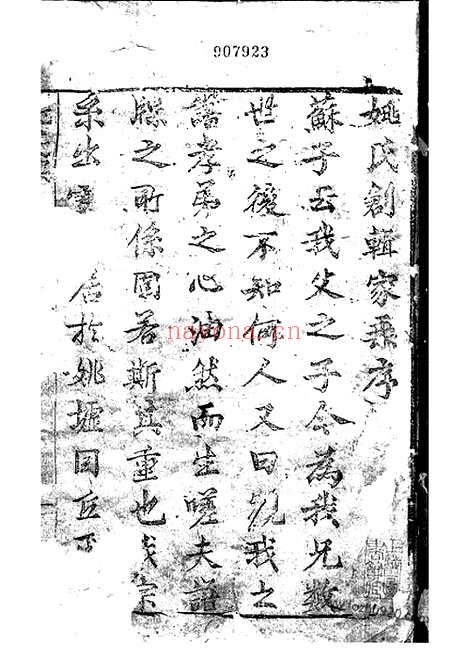 907923
姚氏創輯家乘序
蘇子云我父之子今為我兄數
世之後不知何人又曰觀我之
譜孝弟之心油然而生嗟夫譜
牒之所係固若斯其重也我宗
系出 居於姚墟因丘
nayona.cn